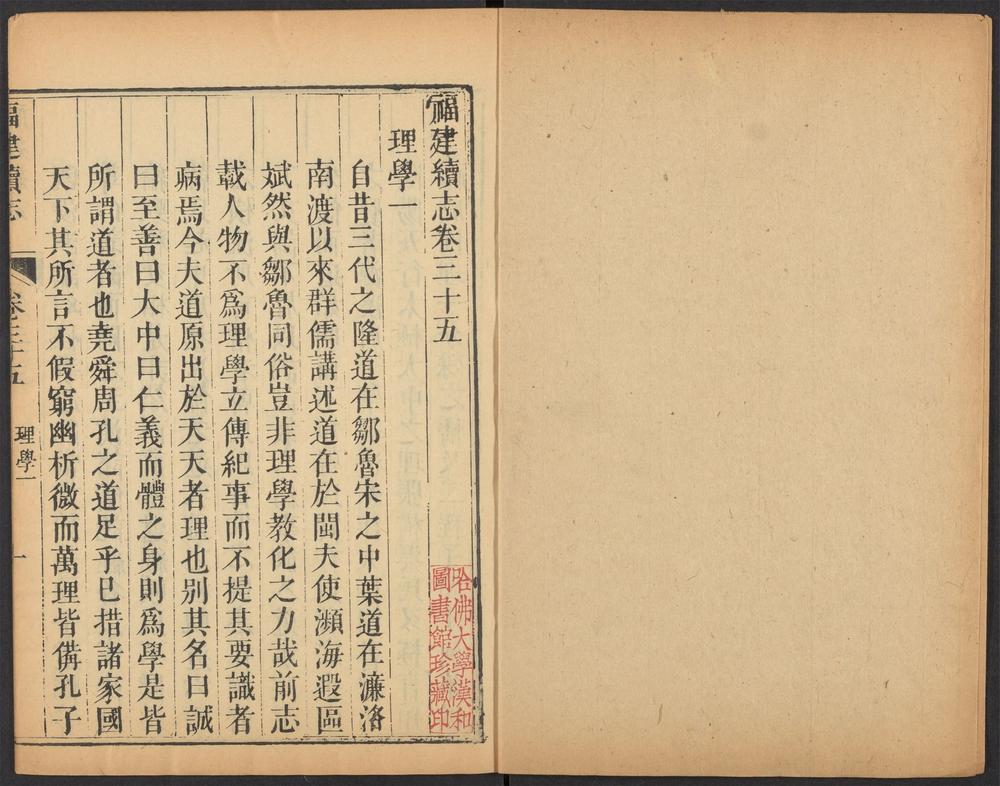 福建續志卷三十五
理學一
自昔三代之隆道在鄒魯宋之中葉道在濂洛
南渡以來群儒講述道在於閩夫使瀕海遐區
斌然與鄒魯同俗豈非理學教化之力哉前志
載人物不爲理學立傳紀事而不提其要識者
病焉今夫道原出於天天者理也别其名曰誠
曰至善曰大中曰仁義而體之身則爲學是皆
所謂道者也堯舜周孔之道足乎巳措諸家國
天下其所言不假窮幽析微而萬理皆備孔子
福建續志
卷三十五
理學一
一
哈佛大學漢和
圖書館珍藏印